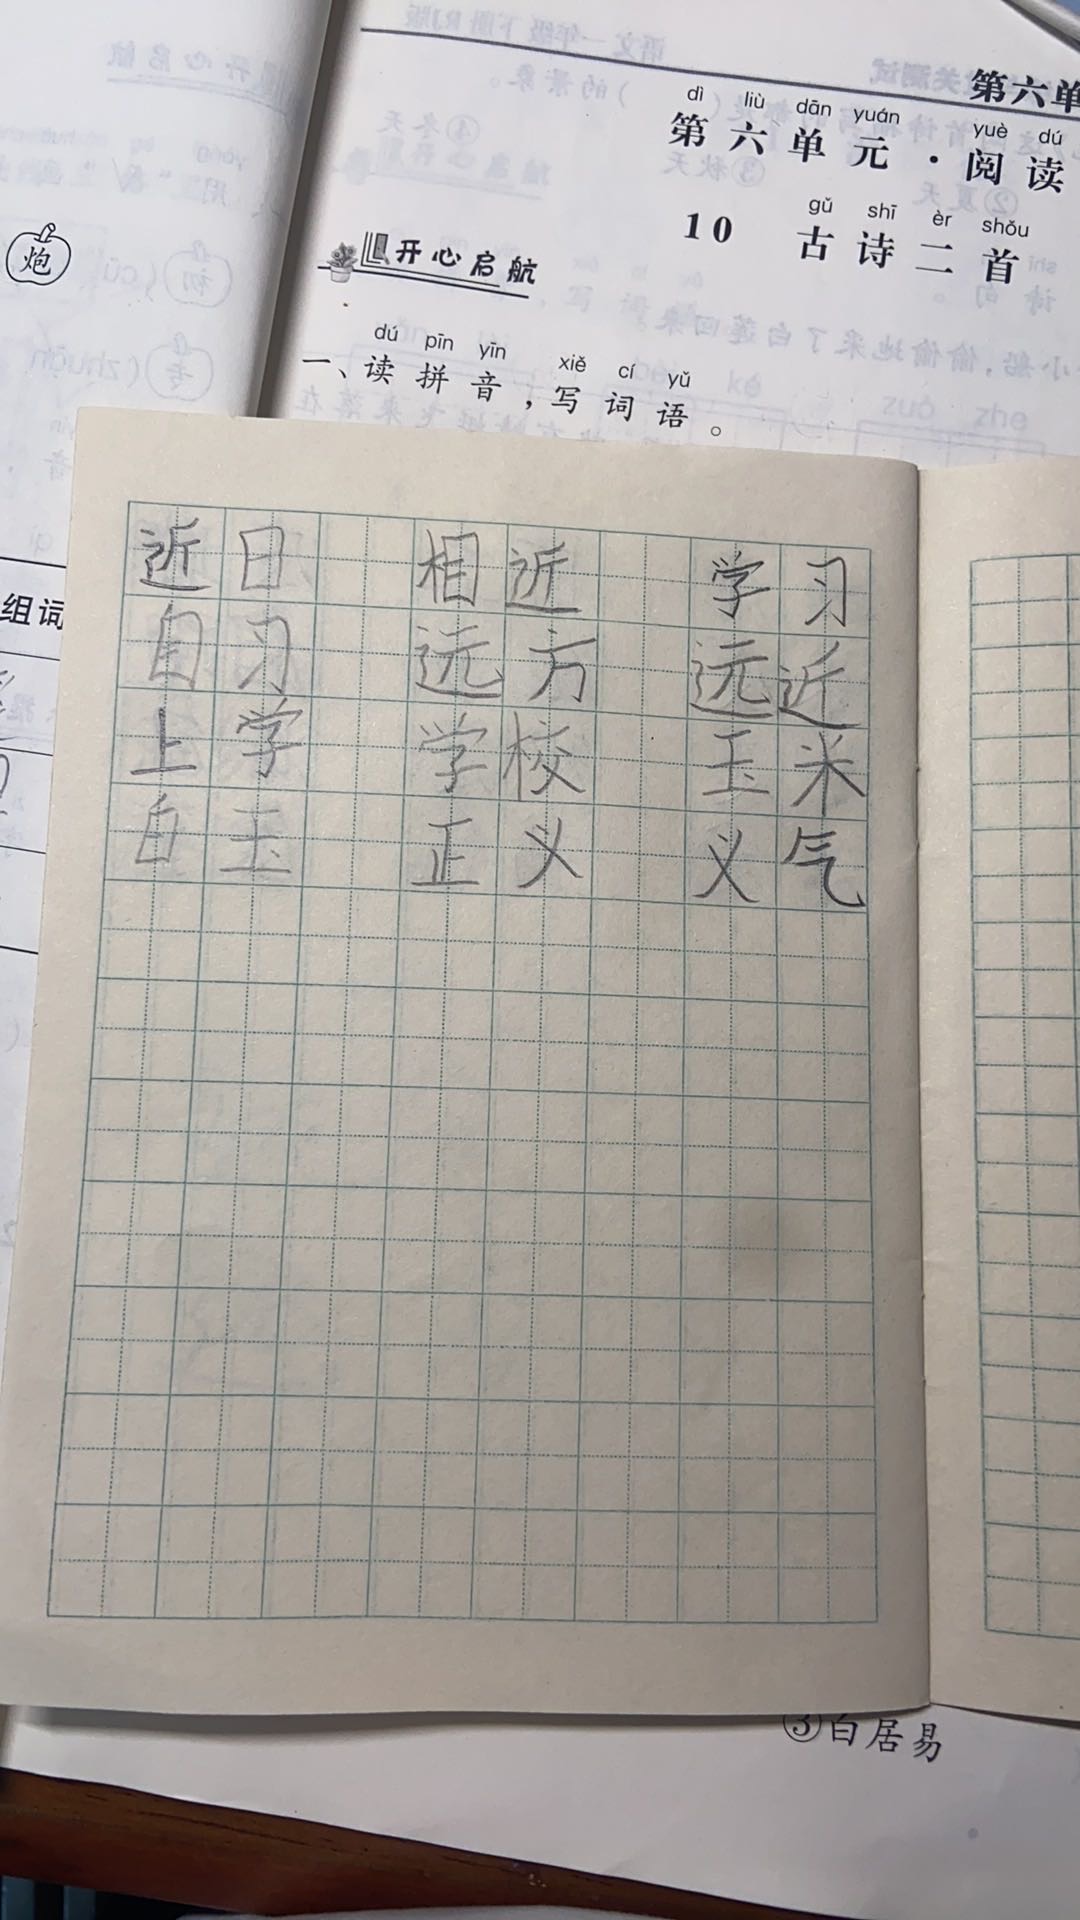 第六单
dì liù dān yuán yuè dú
第六单元·阅读
gǔ shī èr shǒu
10 古诗二首
开心启航
dú pīn yīn xiě cí yǔ
一、读拼音,写词语。
炮
组词
近日 相近 学习
自习 远方 远近
上学 学校 玉米
白玉 正义 义气
③白居易